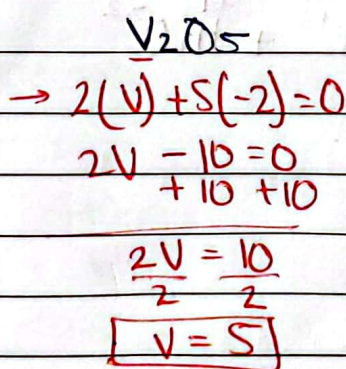 V2O5
→ 2(V) + 5(-2) = 0
2V - 10 = 0
+ 10 + 10
2V = 10
2 2
V = 5